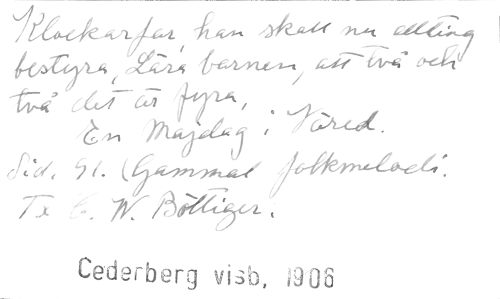 Klockarfar, han skall nu allting
bestyra, Lära barnen, att två och
två det är fyra,
En Majdag i Värend.
Sid. 91. (Gammal folkmelodi.
Tx C. W. Böttiger.
Cederberg visb, 1906